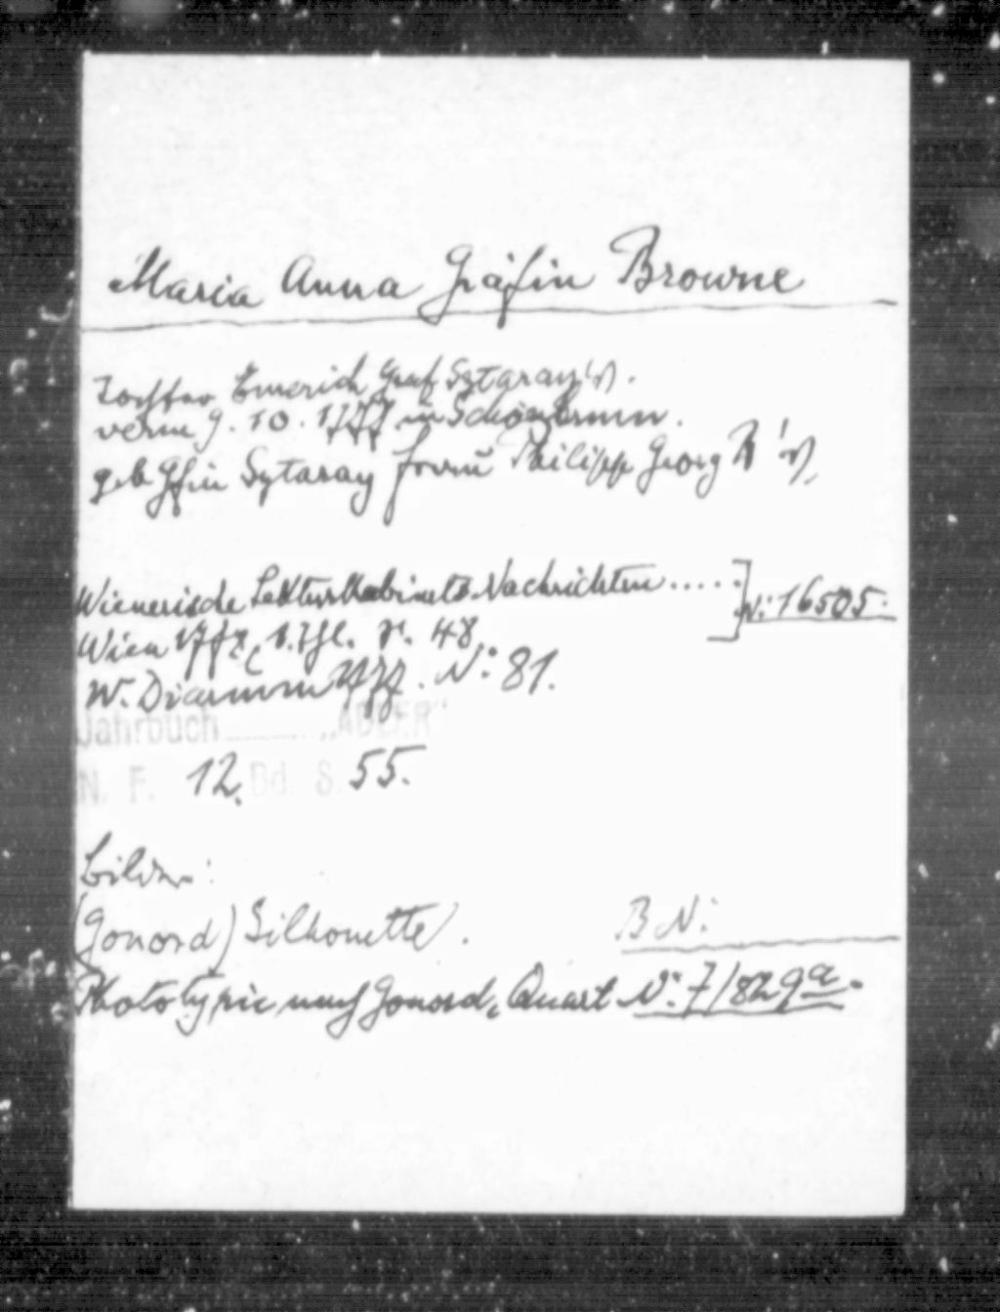 Maria Anna Gräfin Browne
Tochter Emerich Graf Sztaray's.
verm 9. 10. 1777 in Schönbrunn.
geb Gfin Sztaray Philipp Georg B's
Wienerische Lekturkabinets-Nachrichten..... N: 16505.
Wien 1772, 1. Thl. S. 48
W. Diarium 1777. N: 81.
Jahrbuch „ADLER"
N. F. 12. Bd. S. 55.
Bilder:
(Gonord) Silhouette. B N:
Phototypie nach Gonord, Quart N: 7/829a.